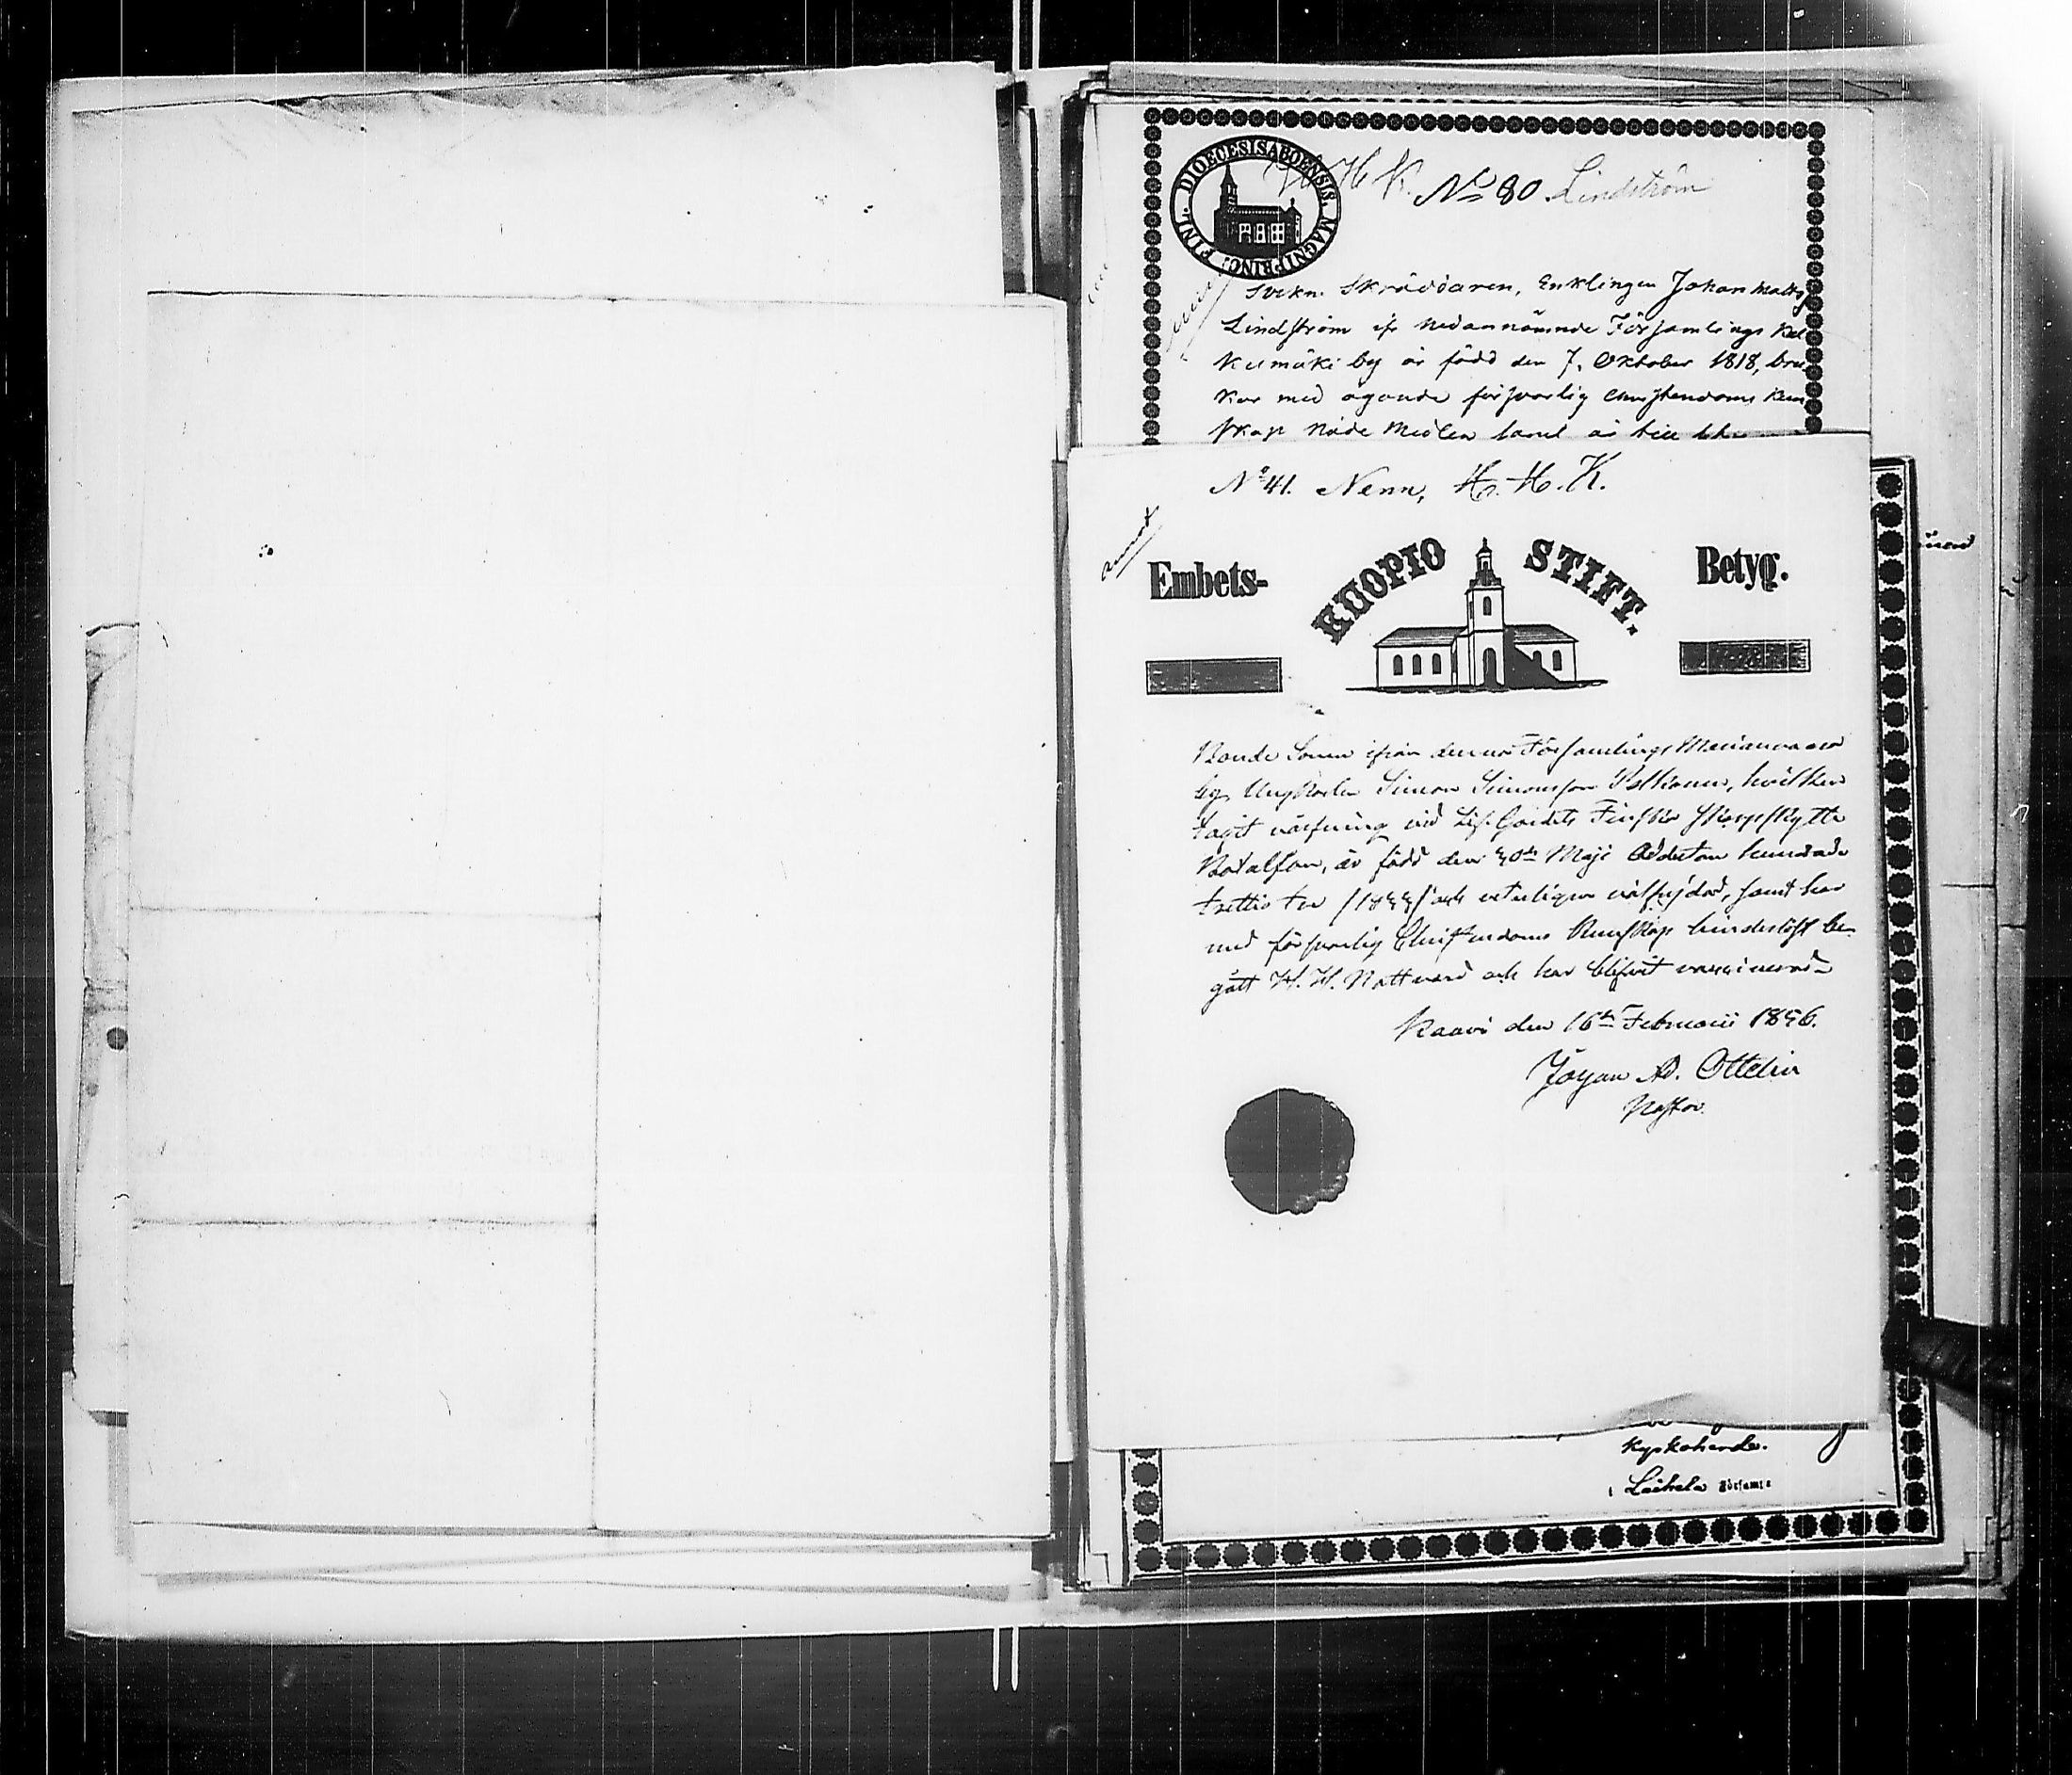 DIOECESIS ABOENSIS. MAGNI PRINC: FINL.
H. K. No 80 Lindström
Skräddaren, Enklingen Johan Matts
Lindström ifr nedannämnde Församlings Kal
kumäki by är född den 7. Oktober 1818, bru
kar med ägande försvarlig christendoms kun
skap Nåde Medlen samt är till
No 41. Nenn, H. H. K.
Embets-
KUOPIO STIFT.
Betyg.
Bonde Sonen ifrån denna Församlings
by Ungkarlen Simon Simonsson, hvilken
tagit värfning vid Lif. Gardets Finska Skarpskytte
Bataljon, är född den 30de Maji Adderton hundrade
trettio tre /1833/ och veterligen välfrejdad, samt har
med försvarlig Christendoms Kunskap hinderslöst be-
gått H. H. Nattvard och har blifvit vaccinerad
Kaavi den 16de Februarii 1856.
Johan Ad. Ottelin
Pastor.
Kyrkoherde.
i Laihela Församl: